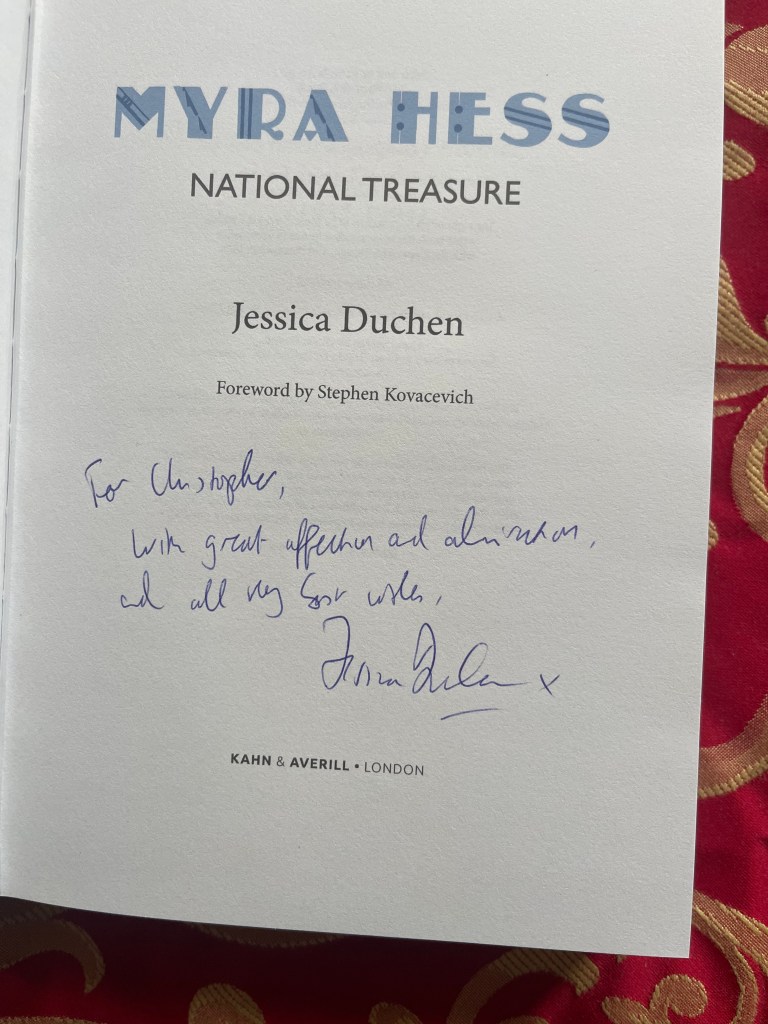 MYRA HESS
NATIONAL TREASURE
Jessica Duchen
Foreword by Stephen Kovacevich
For Christopher,
With great affection and admiration,
and all very best wishes,
Jessica Duchen x
KAHN & AVERILL • LONDON